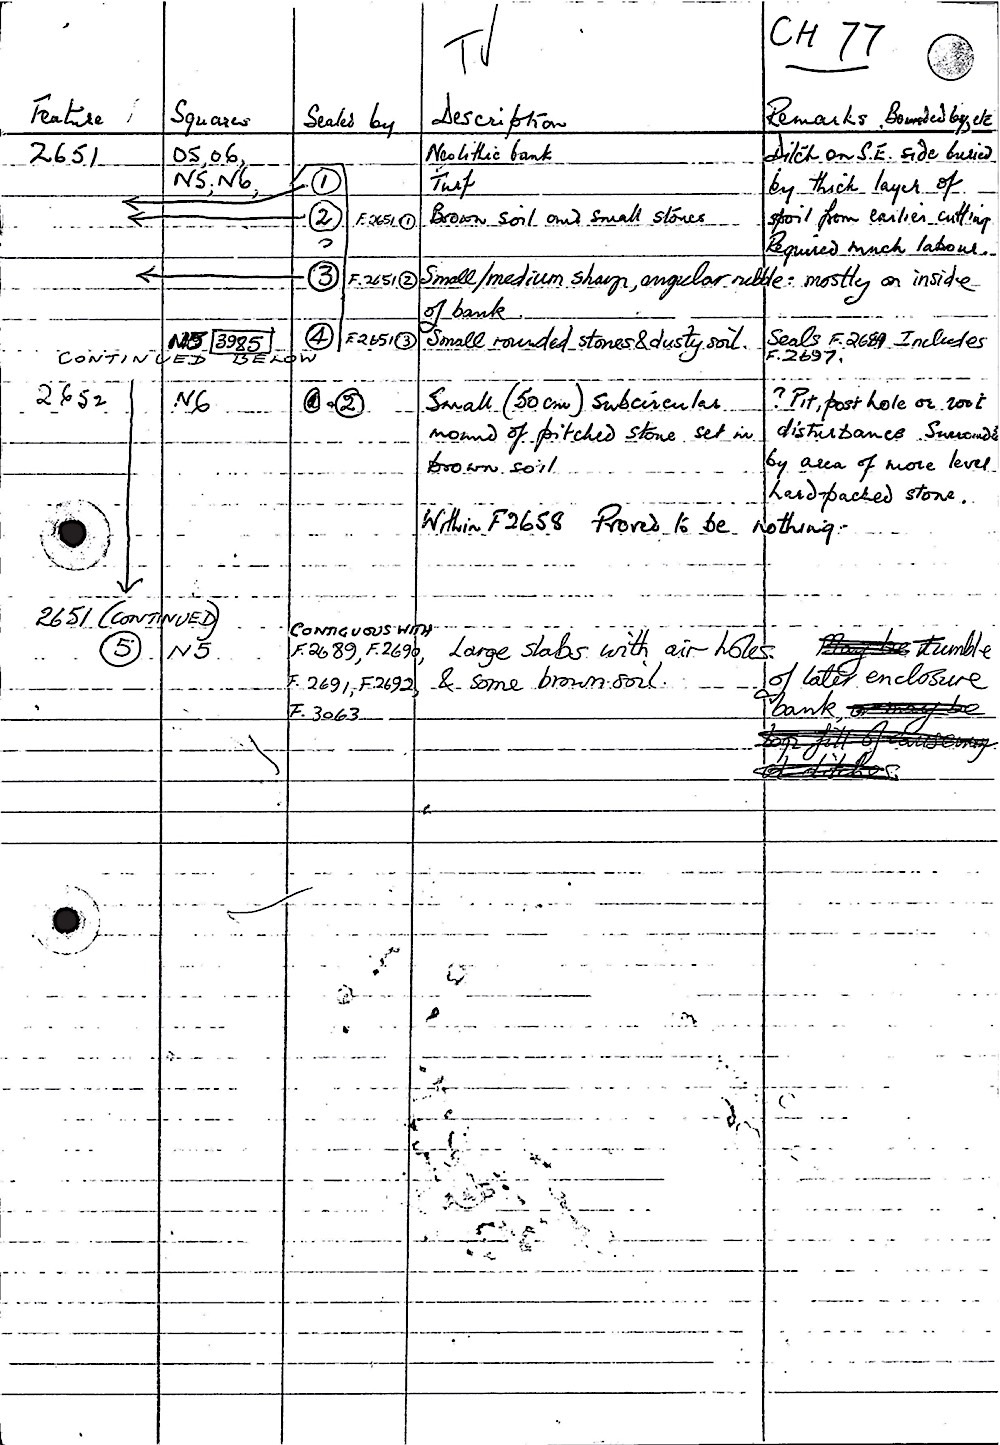 TV
CH 77
Feature Squares Sealed by Description Remarks. Bounded by, etc
2651 O5, O6, Neolithic bank Ditch on S.E. side buried
N5, N6, 1 Turf by thick layer of
2 F.2651 1 Brown soil and small stones spoil from earlier cutting
? Required much labour.
3 F.2651 2 Small/medium sharp, angular rubble: mostly on inside
of bank.
N5 3985 4 F2651 3 Small rounded stones & dusty soil. Seals F.2689 Includes
CONTINUED BELOW F.2697.
2652 N6 1-2 Small (50cm) subcircular ? Pit, post hole or root
mound of pitched stone set in disturbance Surrounded
brown soil by area of more level
hard-packed stone.
Within F2658 Proved to be nothing.
2651 (CONTINUED)
CONTIGUOUS WITH
5 N5 F.2689, F.2690, Large slabs with air holes. May be Tumble
F.2691, F.2692, & some brown soil. of later enclosure
F.3063 bank, or may be
top fill of causeway
of ditches.